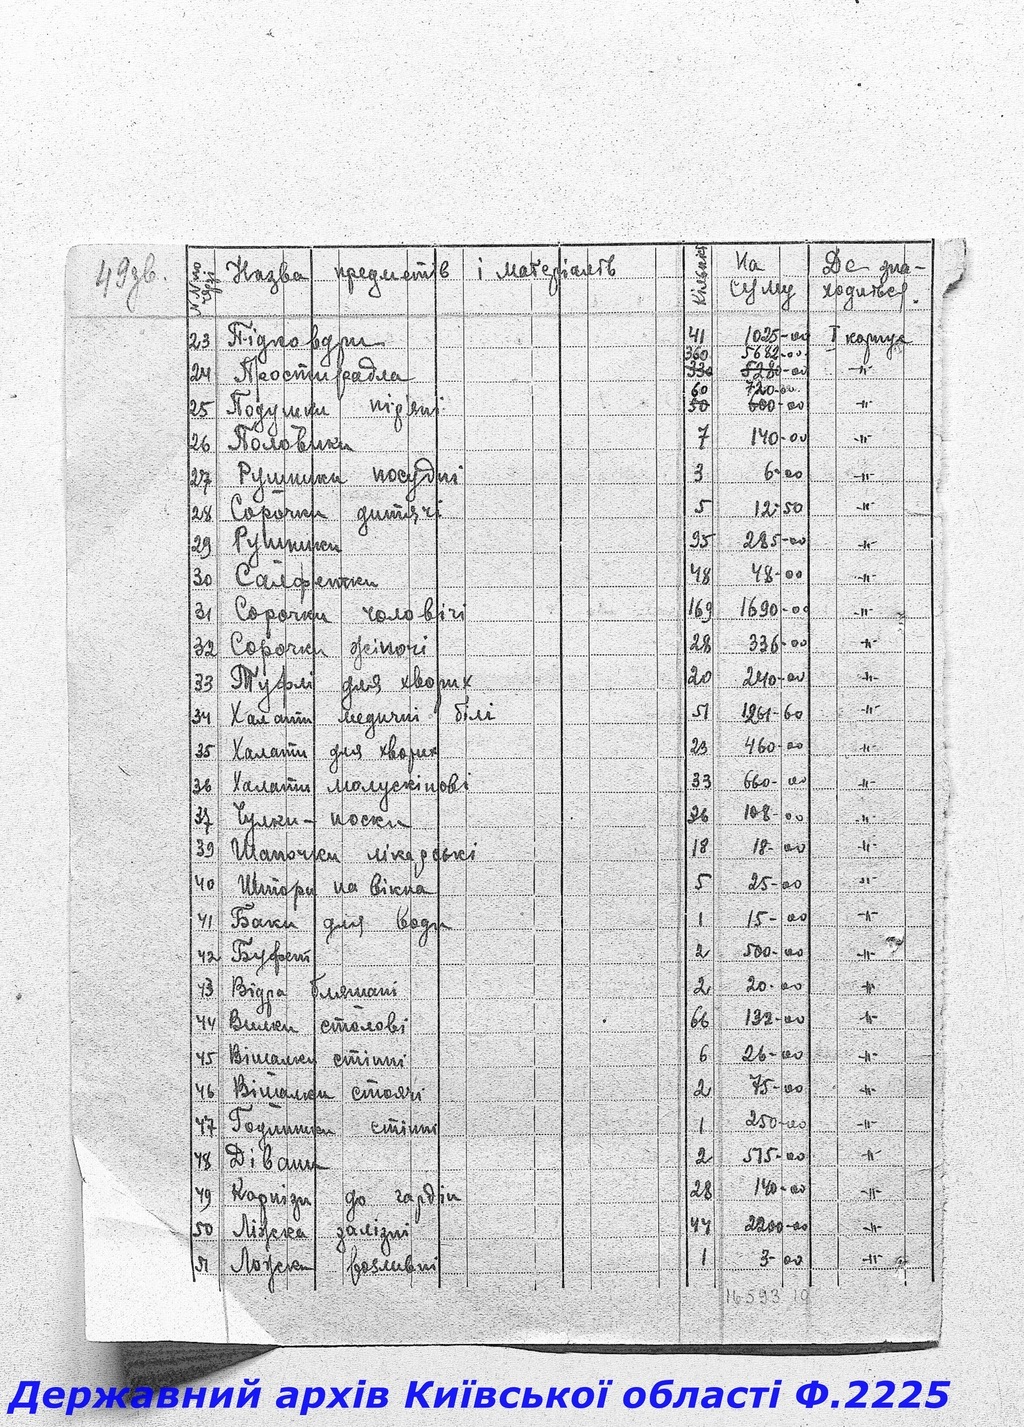 49зв.
N.N по черзі Назва предметів і матеріялів Кількість На суму Де зна-ходиться.
23 Підковдри 41 1025-00 I корпус
360 5682-00
24 Простирадла 330 5280-00 -"-
60 720-00
25 Подушки пір'яні 50 600-00 -"-
26 Половики 7 140-00 -"-
27 Рушники посудні 3 6-00 -"-
28 Сорочки дитячі 5 12-50 -"-
29 Рушники 95 285-00 -"-
30 Салфетки 48 48-00 -"-
31 Сорочки чоловічі 169 1690-00 -"-
32 Сорочки жіночі 28 336-00 -"-
33 Туфлі для хворих 20 240-00 -"-
34 Халати медичні білі 51 1261-60 -"-
35 Халати для хворих 23 460-00 -"-
36 Халати молускінові 33 660-00 -"-
37 Чулки-носки 36 108-00 -"-
39 Шапочки лікарські 18 18-00 -"-
40 Штори на вікна 5 25-00 -"-
41 Баки для води 1 15-00 -"-
42 Буфет 2 500-00 -"-
43 Відра бляшані 2 20-00 -"-
44 Вилки столові 66 132-00 -"-
45 Вішалки стінні 6 26-00 -"-
46 Вішалки стоячі 2 75-00 -"-
47 Годинники стінні 1 250-00 -"-
48 Дівани 2 575-00 -"-
49 Карнізи до гардін 28 140-00 -"-
50 Ліжка залізні 44 2200-00 -"-
51 Ложки розливні 1 3-00 -"-
16593 10
Державний архів Київської області Ф.2225